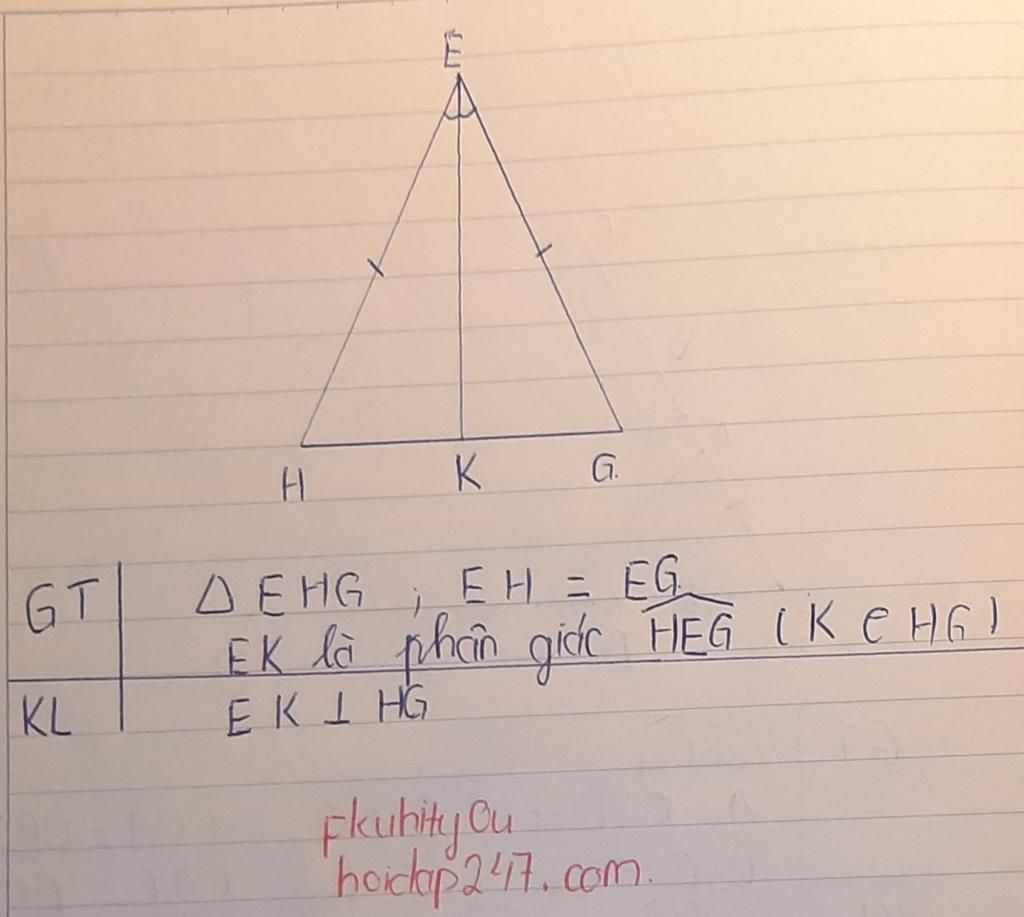 E
H K G
GT Δ EHG ; EH = EG
EK là phân giác HEG (K ∈ HG)
KL EK ⊥ HG
hoidap247.com.